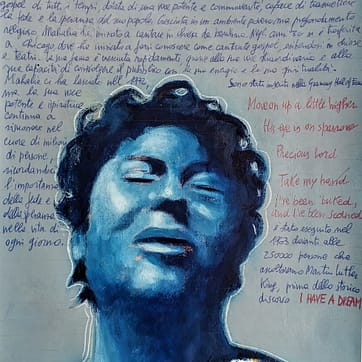 gospel di tutti i tempi, dotata di una voce potente e commovente, capace di trasmettere
la fede e la speranza del suo popolo. Cresciuta in un ambiente povero ma profondamente
religioso, Mahalia iniziò a cantare in chiesa da bambina. Negli anni 30 si è trasferita
a Chicago dove ha iniziato a farsi conoscere come cantante gospel, esibendosi in chiese
e teatri. La sua fama è cresciuta rapidamente grazie alla sua voce straordinaria e alla
sua capacità di coinvolgere il pubblico con la sua energia e la sua spiritualità.
Mahalia ci ha lasciato nel 1972,
ma la sua voce
potente e ispiratrice
continua a
risuonare nel
cuore di milioni
di persone,
ricordandoci
l'importanza
della fede e
della speranza
nella vita di
ogni giorno.
Sono state inserite nella Grammy Hall of Fame
Move on up a little higher
His eye is on sparrow
Precious Lord
Take my hand
I've been 'buked,
and I've been scorned
è stato eseguito nel
1963 davanti alle
250000 persone che
ascoltarono Martin Luther
King, prima dello storico
discorso I HAVE A DREAM